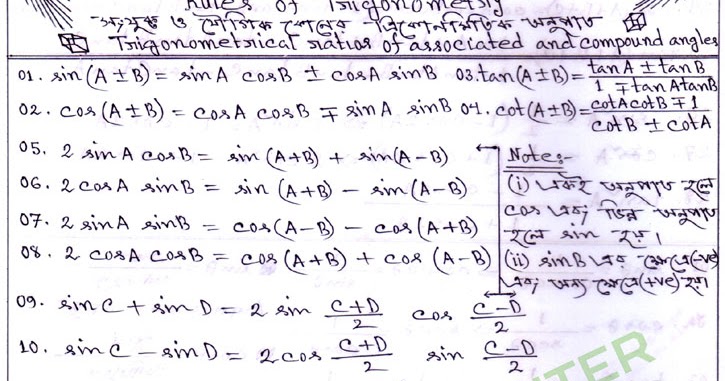 Rules of Trigonometry
সংযুক্ত ও যৌগিক কোণের ত্রিকোণমিতিক অনুপাত
Trigonometrical ratios of associated and compound angles
01. sin(A±B) = sinA cosB ± cosA sinB 03. tan(A±B) = (tanA ± tanB)/(1 ∓ tanA tanB)
02. cos(A±B) = cosA cosB ∓ sinA sinB 04. cot(A±B) = (cotA cotB ∓ 1)/(cotB ± cotA)
05. 2 sinA cosB = sin(A+B) + sin(A-B)
06. 2 cosA sinB = sin(A+B) - sin(A-B)
07. 2 sinA sinB = cos(A-B) - cos(A+B)
08. 2 cosA cosB = cos(A+B) + cos(A-B)
Note:-
(i) একই অনুপাত হলে
cos এবং ভিন্ন অনুপাত
হলে sin হয়।
(ii) sinB এর ক্ষেত্রে(-ve)
এবং অন্য ক্ষেত্রে(+ve) হয়।
09. sinC + sinD = 2 sin (C+D)/2 cos (C-D)/2
10. sinC - sinD = 2 cos (C+D)/2 sin (C-D)/2